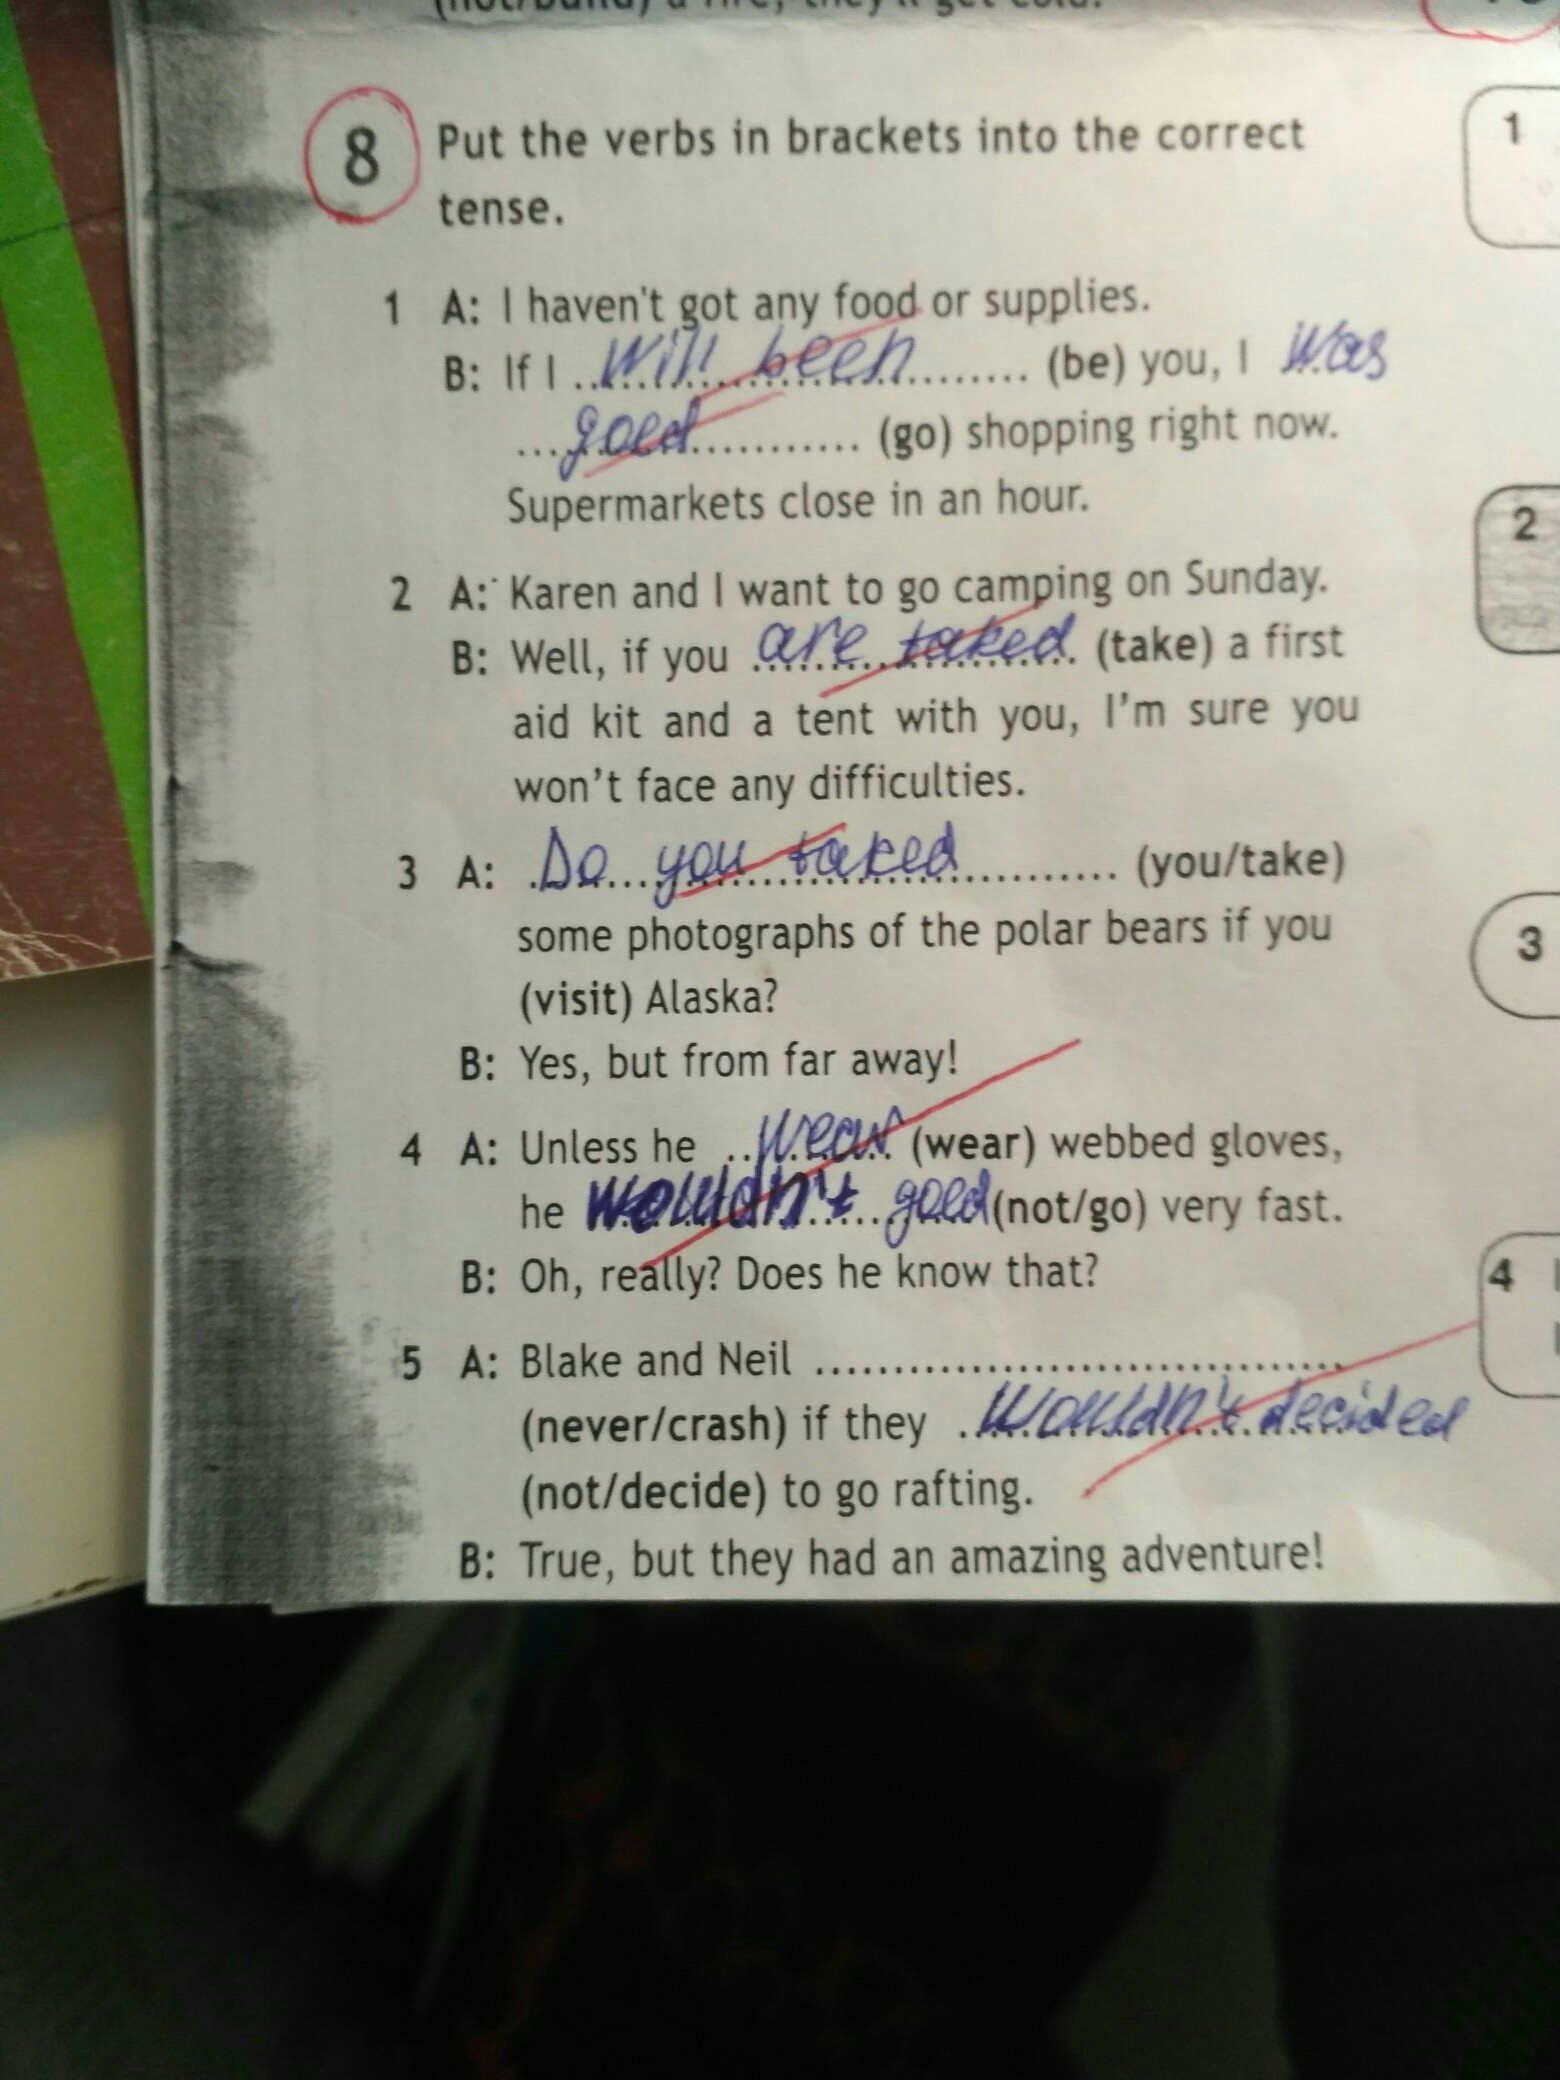 8 Put the verbs in brackets into the correct
tense.
1 A: I haven't got any food or supplies.
B: If I ...will been... (be) you, I was
...goed... (go) shopping right now.
Supermarkets close in an hour.
2 A: Karen and I want to go camping on Sunday.
B: Well, if you ...are taked... (take) a first
aid kit and a tent with you, I'm sure you
won't face any difficulties.
3 A: ...Do you taked... (you/take)
some photographs of the polar bears if you
(visit) Alaska?
B: Yes, but from far away!
4 A: Unless he ...wear... (wear) webbed gloves,
he wouldn't ... goed (not/go) very fast.
B: Oh, really? Does he know that?
5 A: Blake and Neil ...................................
(never/crash) if they ...wouldn't decided
(not/decide) to go rafting.
B: True, but they had an amazing adventure!
1
2
3
4